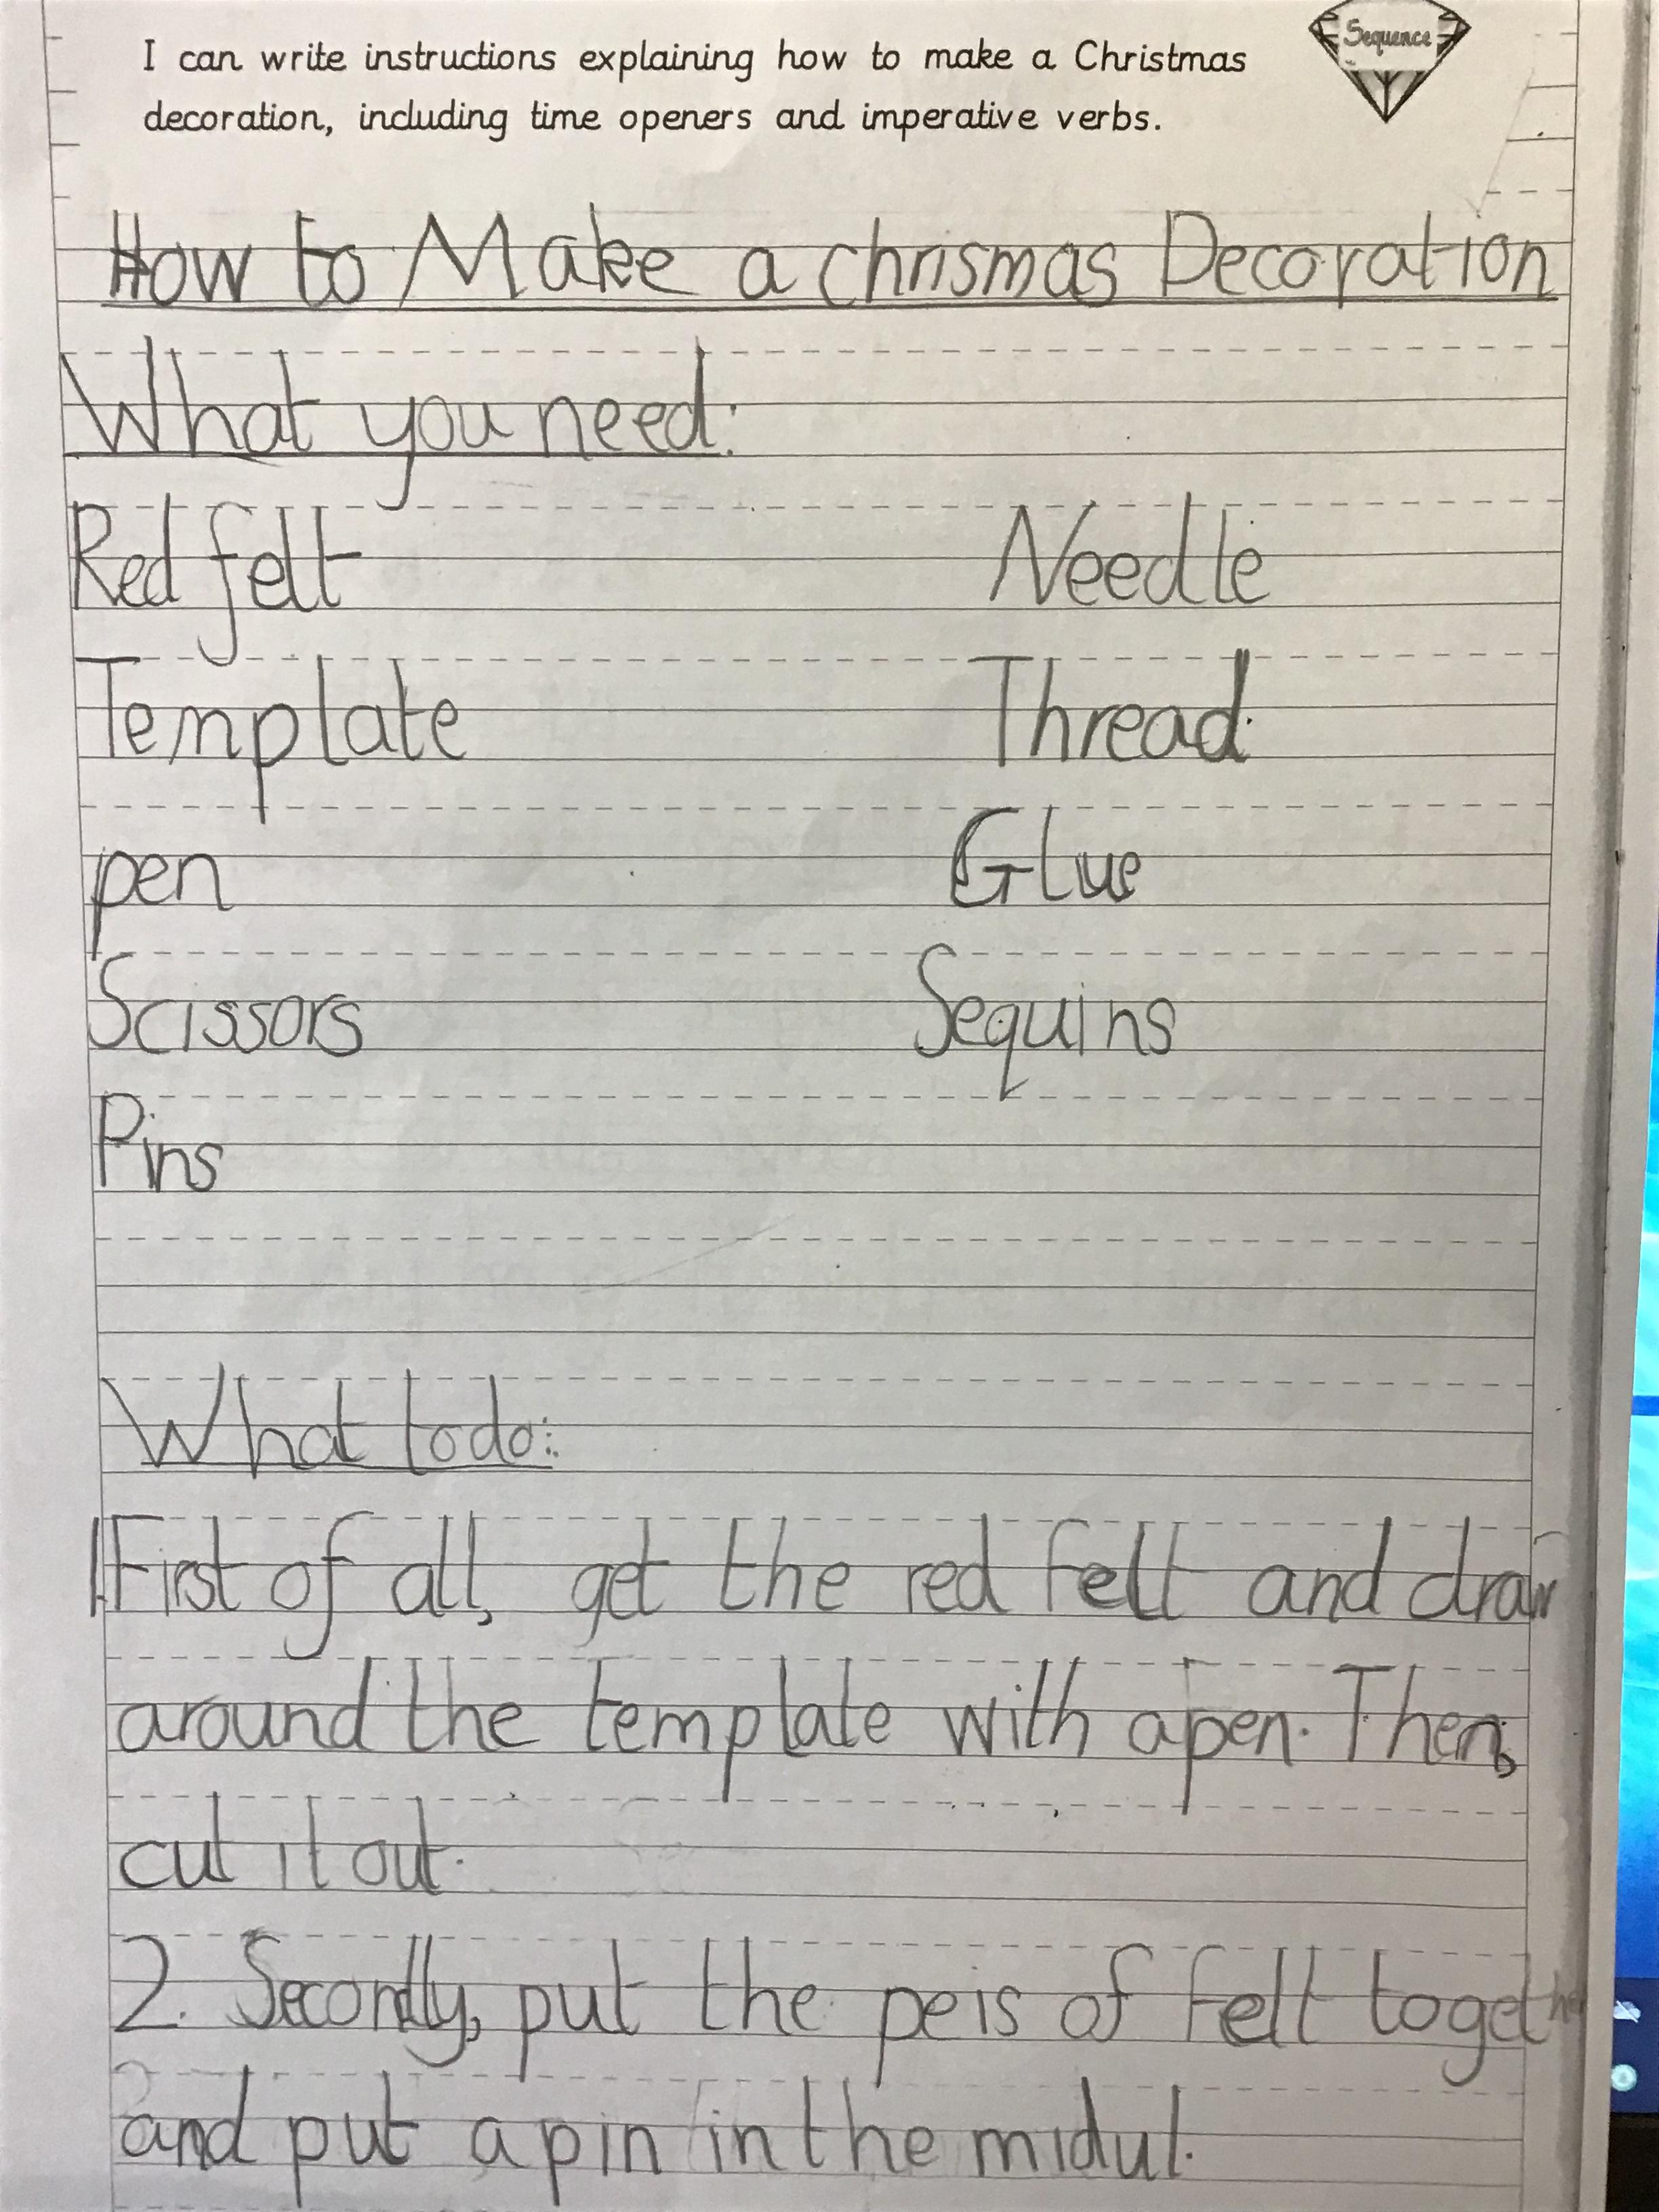 I can write instructions explaining how to make a Christmas
decoration, including time openers and imperative verbs.
Sequence
How to Make a chrismas Decoration
What you need:
Red felt Needle
Template Thread
pen Glue
Scissors Sequins
Pins
What to do:
1. First of all, get the red felt and draw
around the template with a pen. Then,
cut it out.
2. Secondly, put the peis of felt together
and put a pin in the midul.